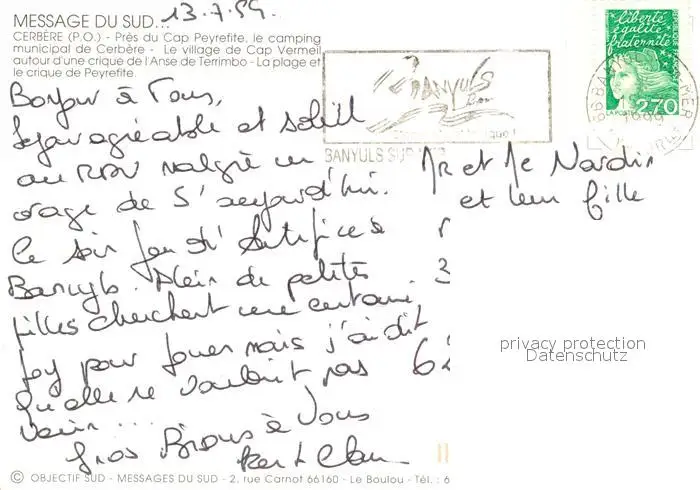 MESSAGE DU SUD... 13.7.99.
CERBÈRE (P.O.) - Près du Cap Peyrefite, le camping
municipal de Cerbère - Le village de Cap Vermeil
autour d'une crique de l'Anse de Terrimbo - La plage et
le crique de Peyrefite.
liberté
égalité
fraternité
LA POSTE
2,70
BANYULS
BANYULS SUR MER
Bonjour à Tous,
Séjour agréable et soleil
au RDV malgré un
orage de 5' aujourd'hui.
Ce soir feu d'Artifice à
Banyuls. Plein de petites
filles cherchent une certaine
pour jouer mais j'ai dit
qu'elle ne voulait pas
venir...
Gros Bisous à Vous
Mr et Me Nardin
et leur fille
3
62
privacy protection
Datenschutz
© OBJECTIF SUD - MESSAGES DU SUD - 2, rue Carnot 66160 - Le Boulou - Tél. : 6